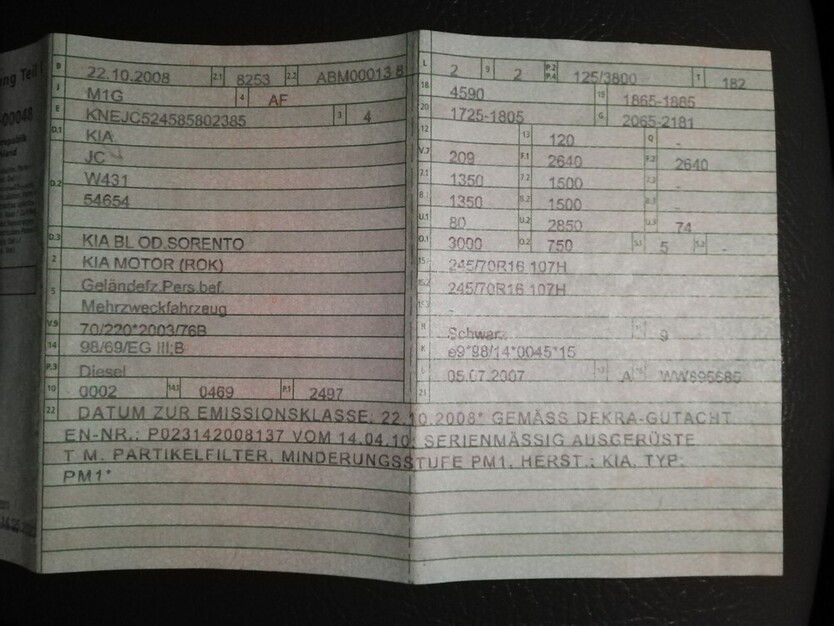 ung Teil
B 22.10.2008 2.1 8253 2.2 ABM00013 8
J M1G 4 AF
E KNEJC524585802385 3 4
D.1 KIA
JC -
D.2 W431
54654
D.3 KIA BL OD.SORENTO
2 KIA MOTOR (ROK)
5 Geländefz.Pers.bef.
Mehrzweckfahrzeug
V.9 70/220*2003/76B
14 98/69/EG III;B
P.3 Diesel
10 0002 14.1 0469 P.1 2497
L 2 9 2 P.2 P.4 125/3800 T 182
18 4590 19 1865-1885
20 1725-1805 G 2065-2181
12 - 13 120 Q -
V.7 209 F.1 2640 F.2 2640
7.1 1350 7.2 1500 7.3 -
8.1 1350 8.2 1500 8.3 -
U.1 80 U.2 2850 U.3 74
O.1 3000 O.2 750 S.1 5 S.2 -
15.1 245/70R16 107H
15.2 245/70R16 107H
15.3 -
R Schwarz 9
K e9*98/14*0045*15
05.07.2007 A
21
22 DATUM ZUR EMISSIONSKLASSE: 22.10.2008* GEMÄSS DEKRA-GUTACHT
EN-NR.: P023142008137 VOM 14.04.10: SERIENMÄSSIG AUSGERÜSTE
T M. PARTIKELFILTER, MINDERUNGSSTUFE PM1, HERST.: KIA, TYP:
PM1*